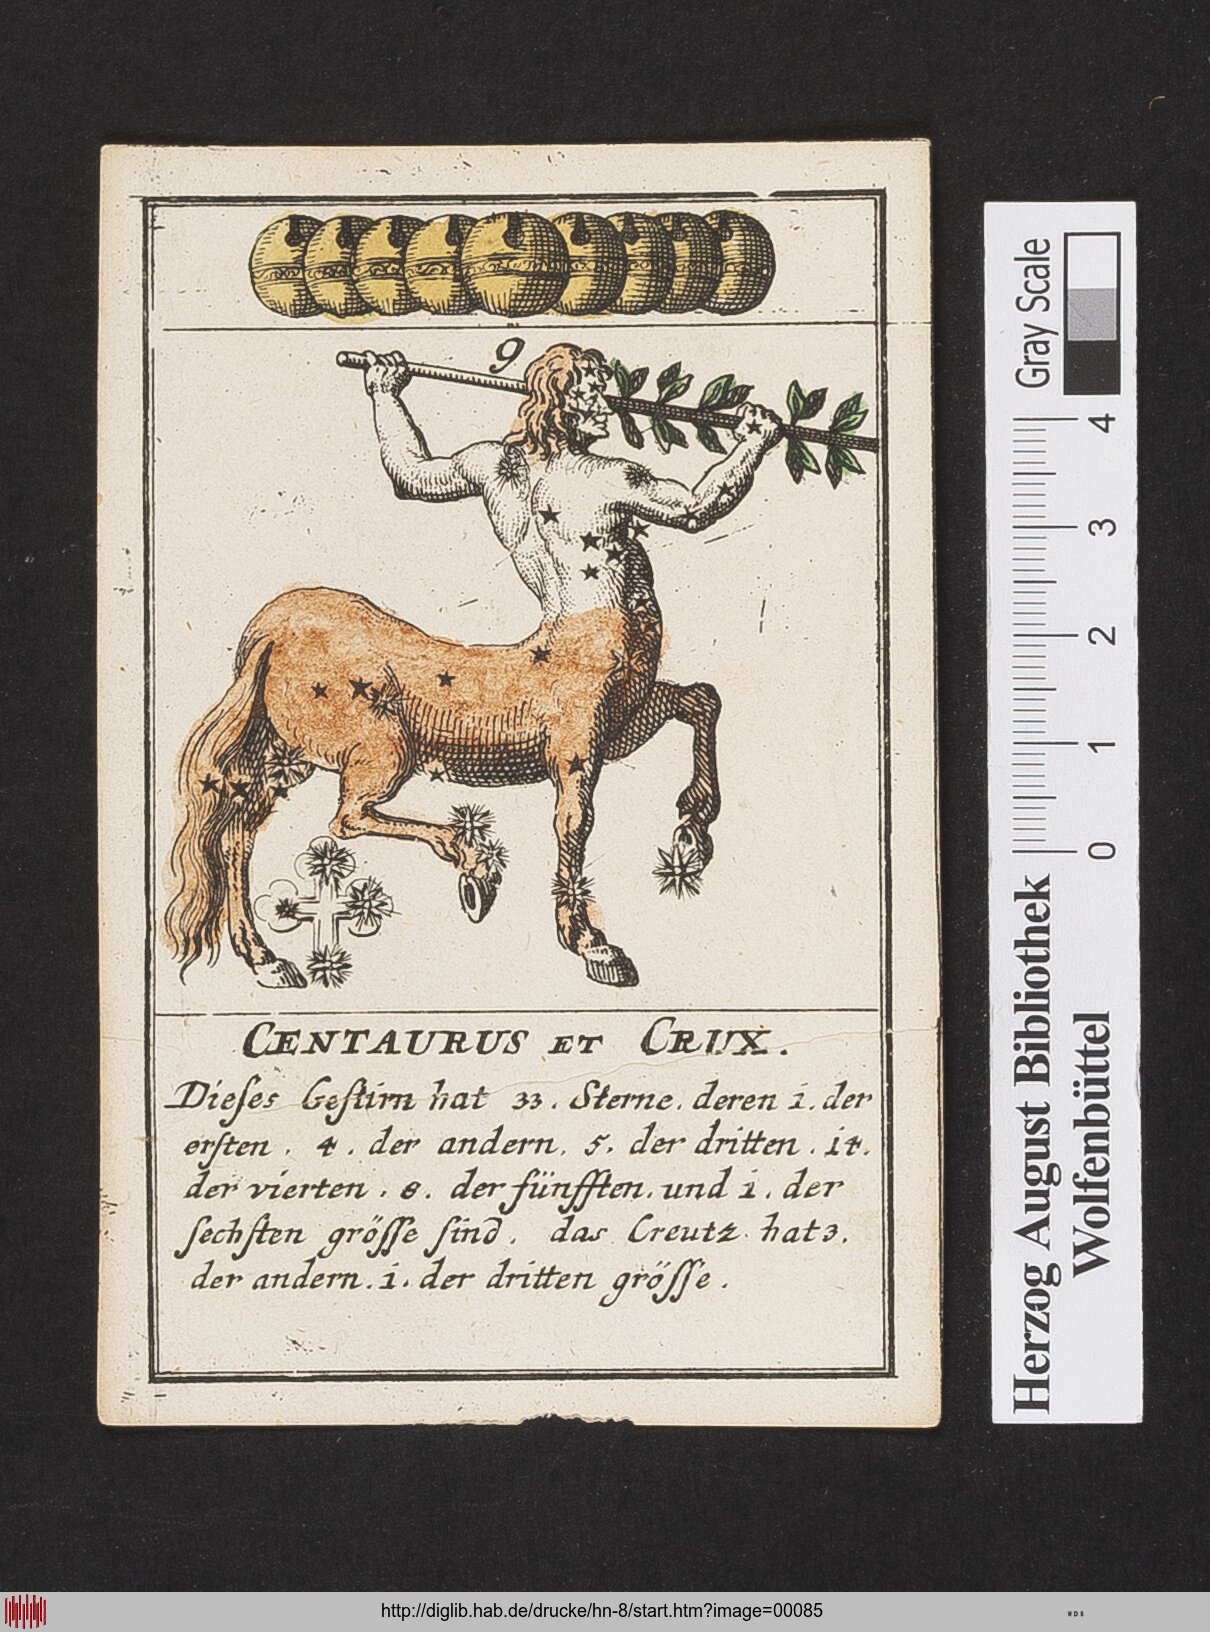 9
CENTAURUS ET CRUX.
Dieſes Geſtirn hat 33. Sterne. deren 1. der
erſten. 4. der andern. 5. der dritten. 14.
der vierten. 8. der fünfften. und 1. der
ſechſten gröſſe ſind. das Creutz hat 3.
der andern. 1. der dritten gröſſe.
Gray Scale
4
3
2
1
0
Herzog August Bibliothek
Wolfenbüttel
http://diglib.hab.de/drucke/hn-8/start.htm?image=00085
WDB